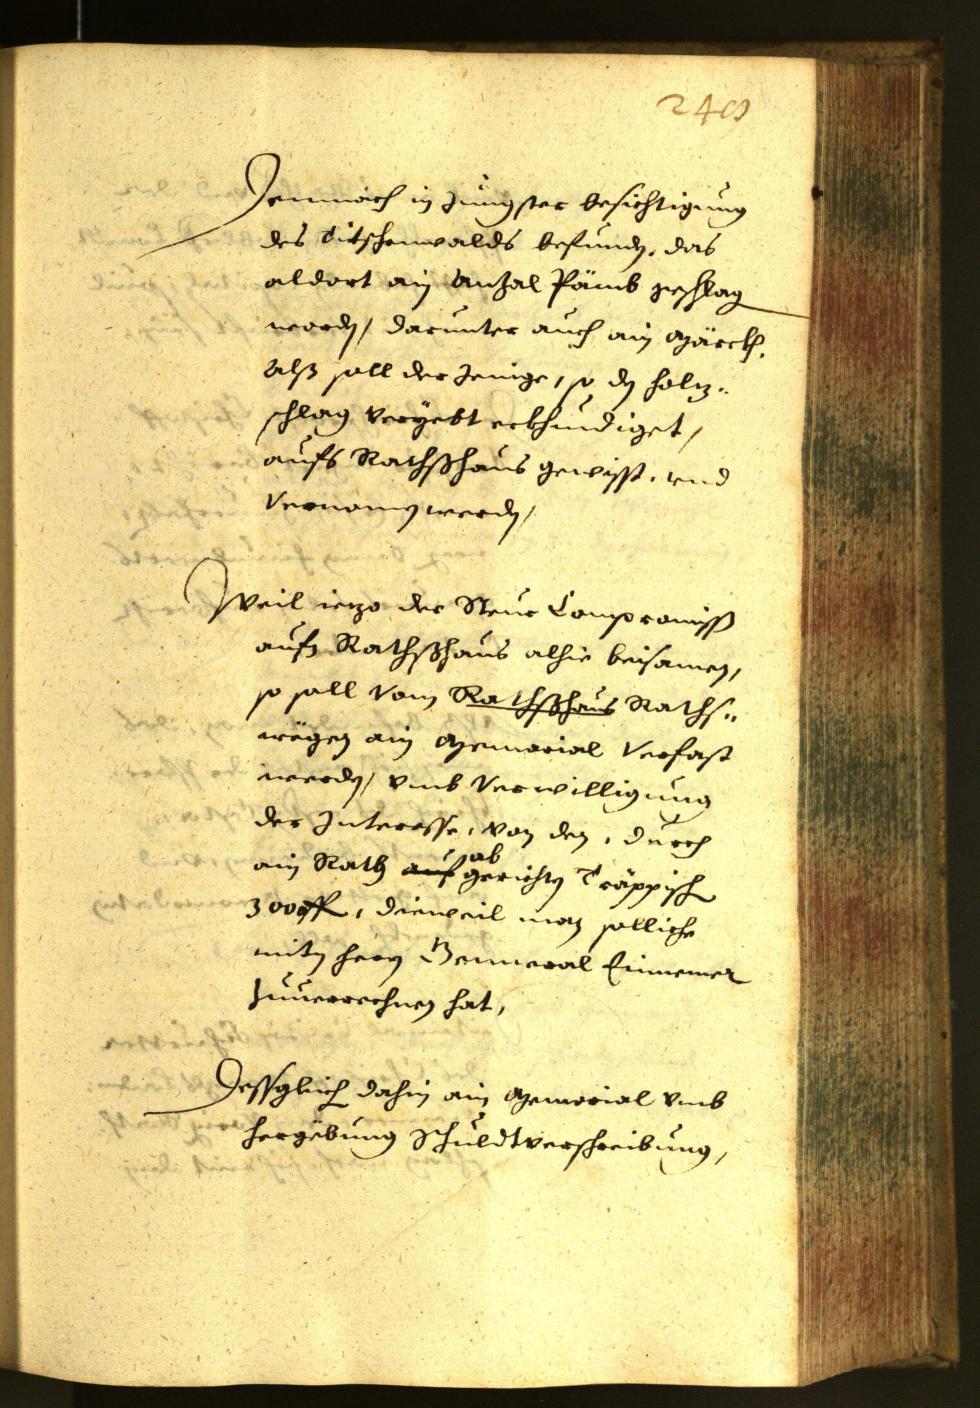 240
Demnach in Jungster besichtigung
des Titschenwalds befunden, das
aldort ain Anzal Pämb geschlag
worden, darunter auch ain Märckh.
Alß soll der Jenige, so den holz-
schlag veryebt erkhundiget,
aufs Rathßhaus gewisst, und
Vernomen werden,
Weil iezo der Steur Compromiss
aufm Rathßhaus alhie beisamen,
so soll Vom Rathßhaus Raths-
wegen ain Memorial Verfast
werden, umb Verwilligung
der Interesse, von den, durch
ain Rath auf ab gerichten Träppisch
300 fl, dieweil man solliche
mitn herrn Genneral Einnemer
Zuuerrechnen hat,
Dessgleich dahin ain Memorial umb
hergebung Schuldtverschreibung,